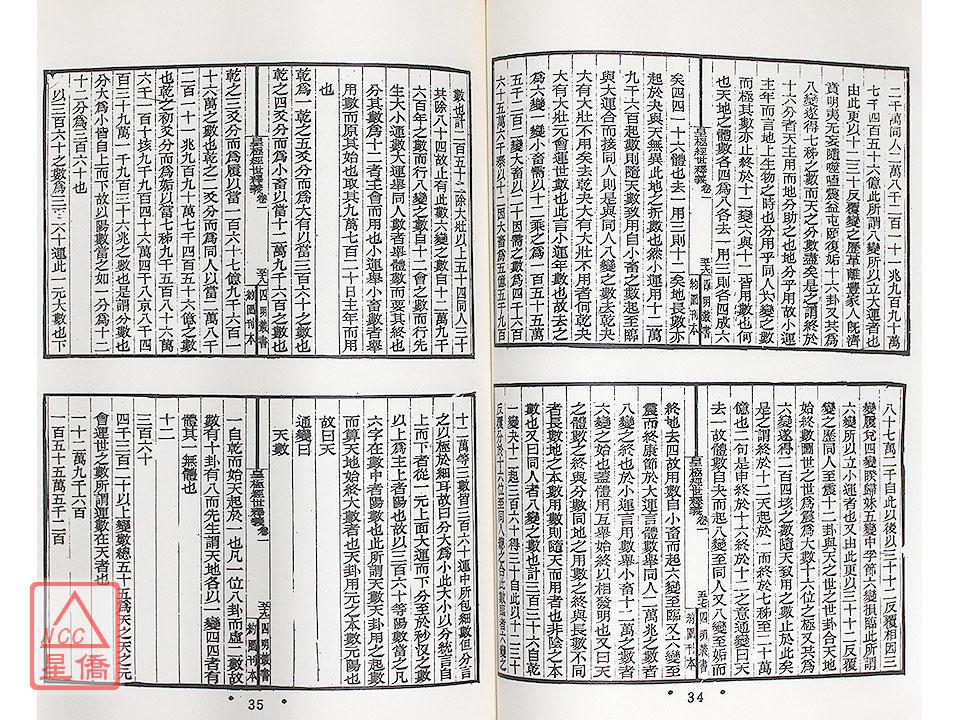 二千萬同人二萬八千二百一十一兆九百九十萬
七千四百五十六億此所謂八變所以立大運者也
由此更以十二三十反覆變之歷革離豐家人旣濟
賁明夷无妄隨噬嗑震益屯頤復姤十六卦又其爲
八變遂得七秭之數而天之分數盡矣是之謂終於
十六分者天主用而地分助之也地分乎用故小運
主年而言地上生物之時也分用乎同人
而極其數亦止終於十二變六與十二皆用數也何
也天地之體數各四八各去一用三則各四成六
矣四四一十六體也去一用三則十二矣地長數亦
九千六百起則隨天數致用自小畜之數起變至臨
起於夬與天無異此地之折數也然小運用十二萬
與大運合而接同人則是與同人八變之數去乾夬
大有大壯不用矣去乾夬大有大壯不用者何乾夬
大有大壯元會運世數也此言小運年數也故去之
爲六變一變小畜需以十二乘之爲一百五十五萬
五千二百變大畜以二十因需之數爲四千六百
六十五萬六千
皇極經世釋義卷二
四明叢書
約園刊本
八十七萬二千自此以後以三十二反覆相因三
變履兌四變睽歸妹五變中孚節六變損臨此所謂
六變所以立小運者也又由此更以三十二反覆
變之歷同人至震十二卦與天之世之世卦合天地
始終數圖世之世爲震爲大數十六位之極又其爲
六變遂得二百四垓之數隨天致用之數止於此矣
是之謂終於十二天起於一而終於七秭至二十萬
億也二句是申終於十六終於十二之意通變曰天
去一故體數自夬而起八變至同人又八變至姤而
終地去四故用數自小畜而起六變至臨又六變至
震而終康節於大運言體數舉同人二萬兆之數者
八變之終也於小運言用數舉小畜十二萬之數者
六變之始也盡體用互舉始終以相發明也又曰天
之體數之終與分數同地之用數之終與長數不同
者體數地之本數用數則隨天而用者也非陰之本
數也又曰同人者八變之數也計三百三十六自乾
一變夬十二起三百六十得三十自此以十二三十
皇極經世釋義卷二
四明叢書
約園刊本
34
數也計二百五十二除大壯以上五十四同人三十
其除八十四故止有此數六變之數自十二會之數而行
六百年之數而行八變之數自十二萬九千
生大小運大數大運舉同人數者舉體數而要其終也
分其數爲十二者主會而用也小運舉小畜數者舉
用數而原其始也取其九萬七百二十日主年而用
也
乾之一爻分而爲大有以當三百六十之數也
乾之四爻分而爲小畜以當十二萬九千六百之數也
皇極經世釋義卷二
四明叢書
約園刊本
乾之三爻分而爲履以當一百六十七億九千六百一
十六萬之數也乾之二爻分而爲同人以當二萬八千
二百一十一兆九百九十萬七千四百五十六億之數
也乾之初爻分而爲姤以當七秭九千五百八十六萬
六千一百十垓九千九百四十六萬四千八京八千四
百三十九萬一千九百三十六兆之數也是謂分數也
分大爲小皆自上而下故以陽數當之如一分爲十二
十二分爲三百六十也
以三百六十之數爲三百六十運此一元大數也下
十二萬等三數皆三百六十運中所包細數但分言
之以極於細耳故曰分大爲小此大小二字統言自
上而下者從一元上面大運而下分至於秒忽之數
以上爲主上者陽也故以三百六十等陽數當之凡
六字在數中者陽數也此所謂天數天卦用之起數
而算天地始終大數者也天卦用元之本數元陽也
故曰天
通變曰
天數
皇極經世釋義卷二
四明叢書
約園刊本
一自乾而始天起於一也凡一位八卦而虛二數故
數有十卦有八而先生謂天地各以一變四四者有
體其一無體也
十二
三百六十
四千三百二十以上變數總五十五爲天之天之元
會運世之數所謂運數在天者也
一十二萬九千六百
一百五十五萬五千二百
35
NCC
星僑